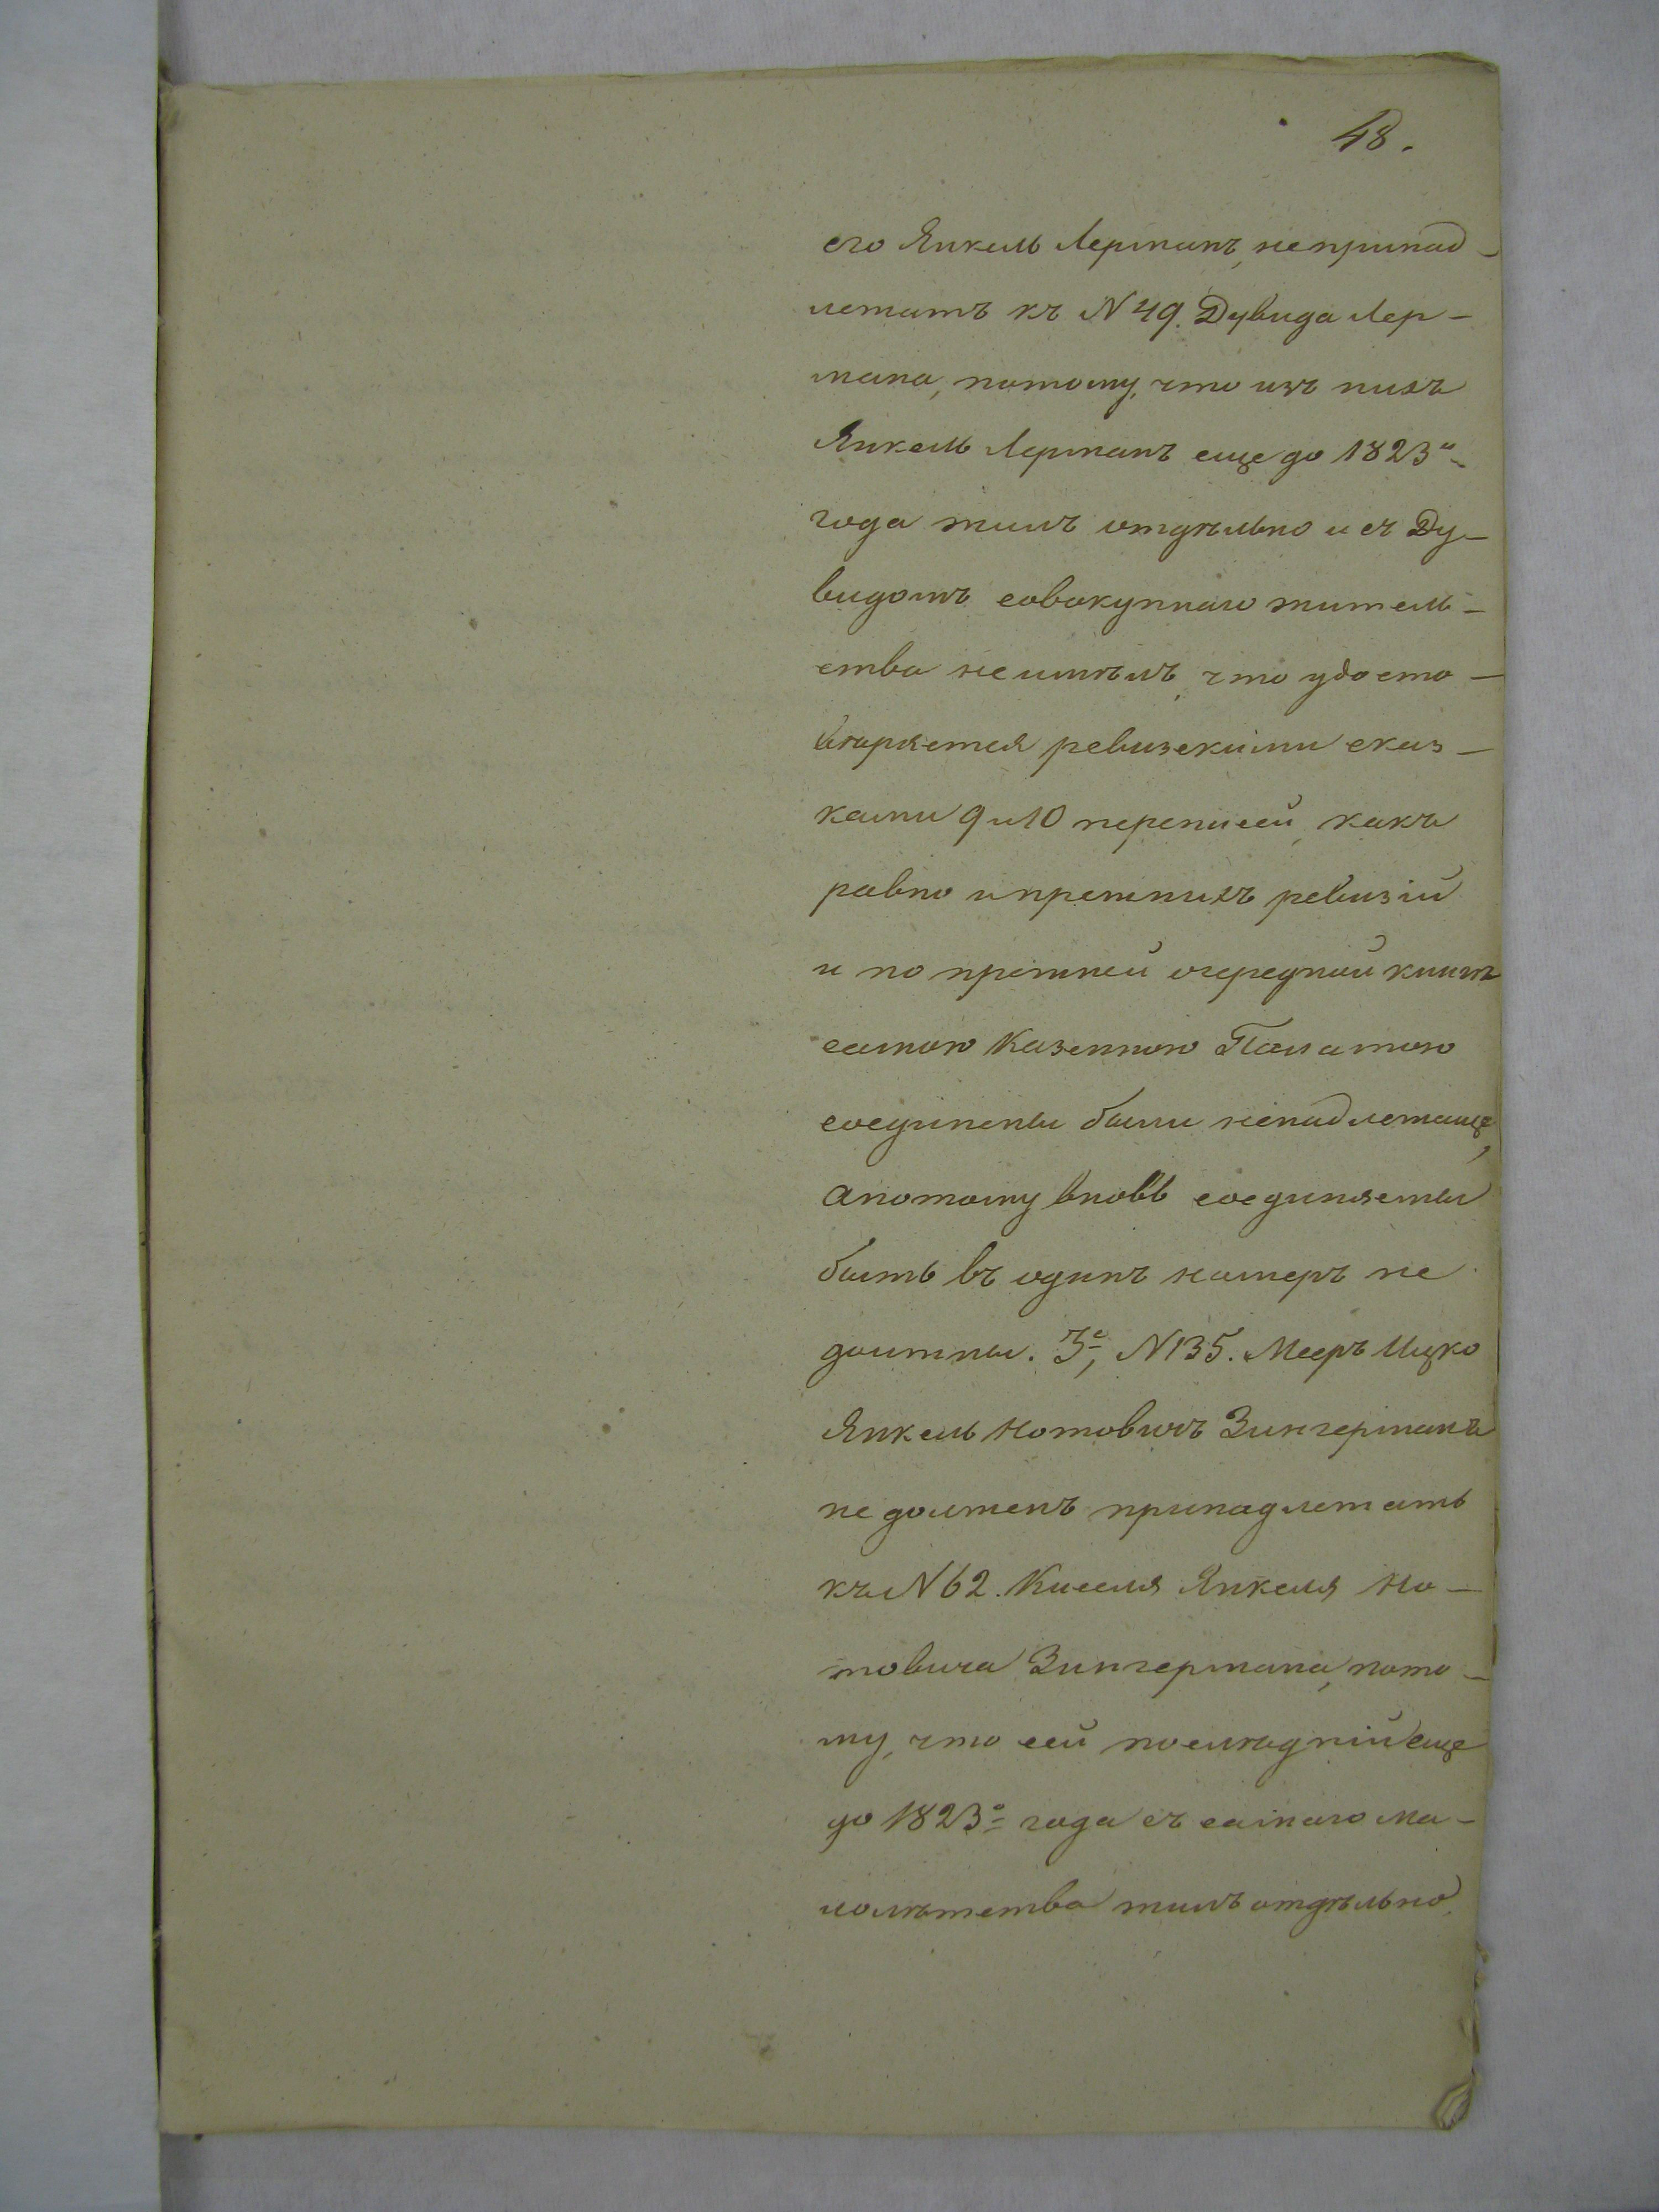 48.
его Янкель Лерманъ, непринад-
лежатъ къ N 49. Дувида Лер-
мана, потому, что изъ нихъ
Янкель Лерманъ еще до 1823го
года жилъ отдѣльно и съ Ду-
видомъ совокупнаго житель-
ства неимѣлъ, что удосто-
вѣряется ревизскими сказ-
ками 9 и 10 переписей, какъ
равно и прежнихъ ревизій
и по прежней очередной книгѣ
самою Казенною Палатою
соединены были ненадлежаще,
апотому вновь соединяемы
быть въ одинъ номеръ не
должны. 3е, N 135. Мееръ Ицко
Янкель Нотовичъ Зингерманъ
не долженъ принадлежать
къ N 62. Киселя Янкеля Но-
товича Зингермана, пото-
му, что сей послѣдній еще
до 1823го года съ самаго ма-
лолѣтства жилъ отдѣльно